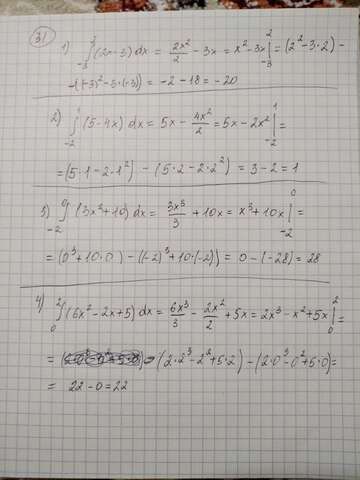 31
1) ∫₋₃² (2x-3) dx = 2x²/2 - 3x = x² - 3x |₋₃² = (2² - 3·2) -
-((-3)² - 3·(-3)) = -2 - 18 = -20
2) ∫₋₂¹ (5-4x) dx = 5x - 4x²/2 = 5x - 2x² |₋₂¹ =
= (5·1 - 2·1²) - (5·2 - 2·2²) = 3 - 2 = 1
3) ∫₋₂⁰ (3x²+10) dx = 3x³/3 + 10x = x³ + 10x |₋₂⁰ =
= (0³ + 10·0) - ((-2)³ + 10·(-2)) = 0 - (-28) = 28
4) ∫₀² (6x² - 2x + 5) dx = 6x³/3 - 2x²/2 + 5x = 2x³ - x² + 5x |₀² =
= (2·2³ - 2² + 5·2) - (2·0³ - 0² + 5·0) =
= 22 - 0 = 22